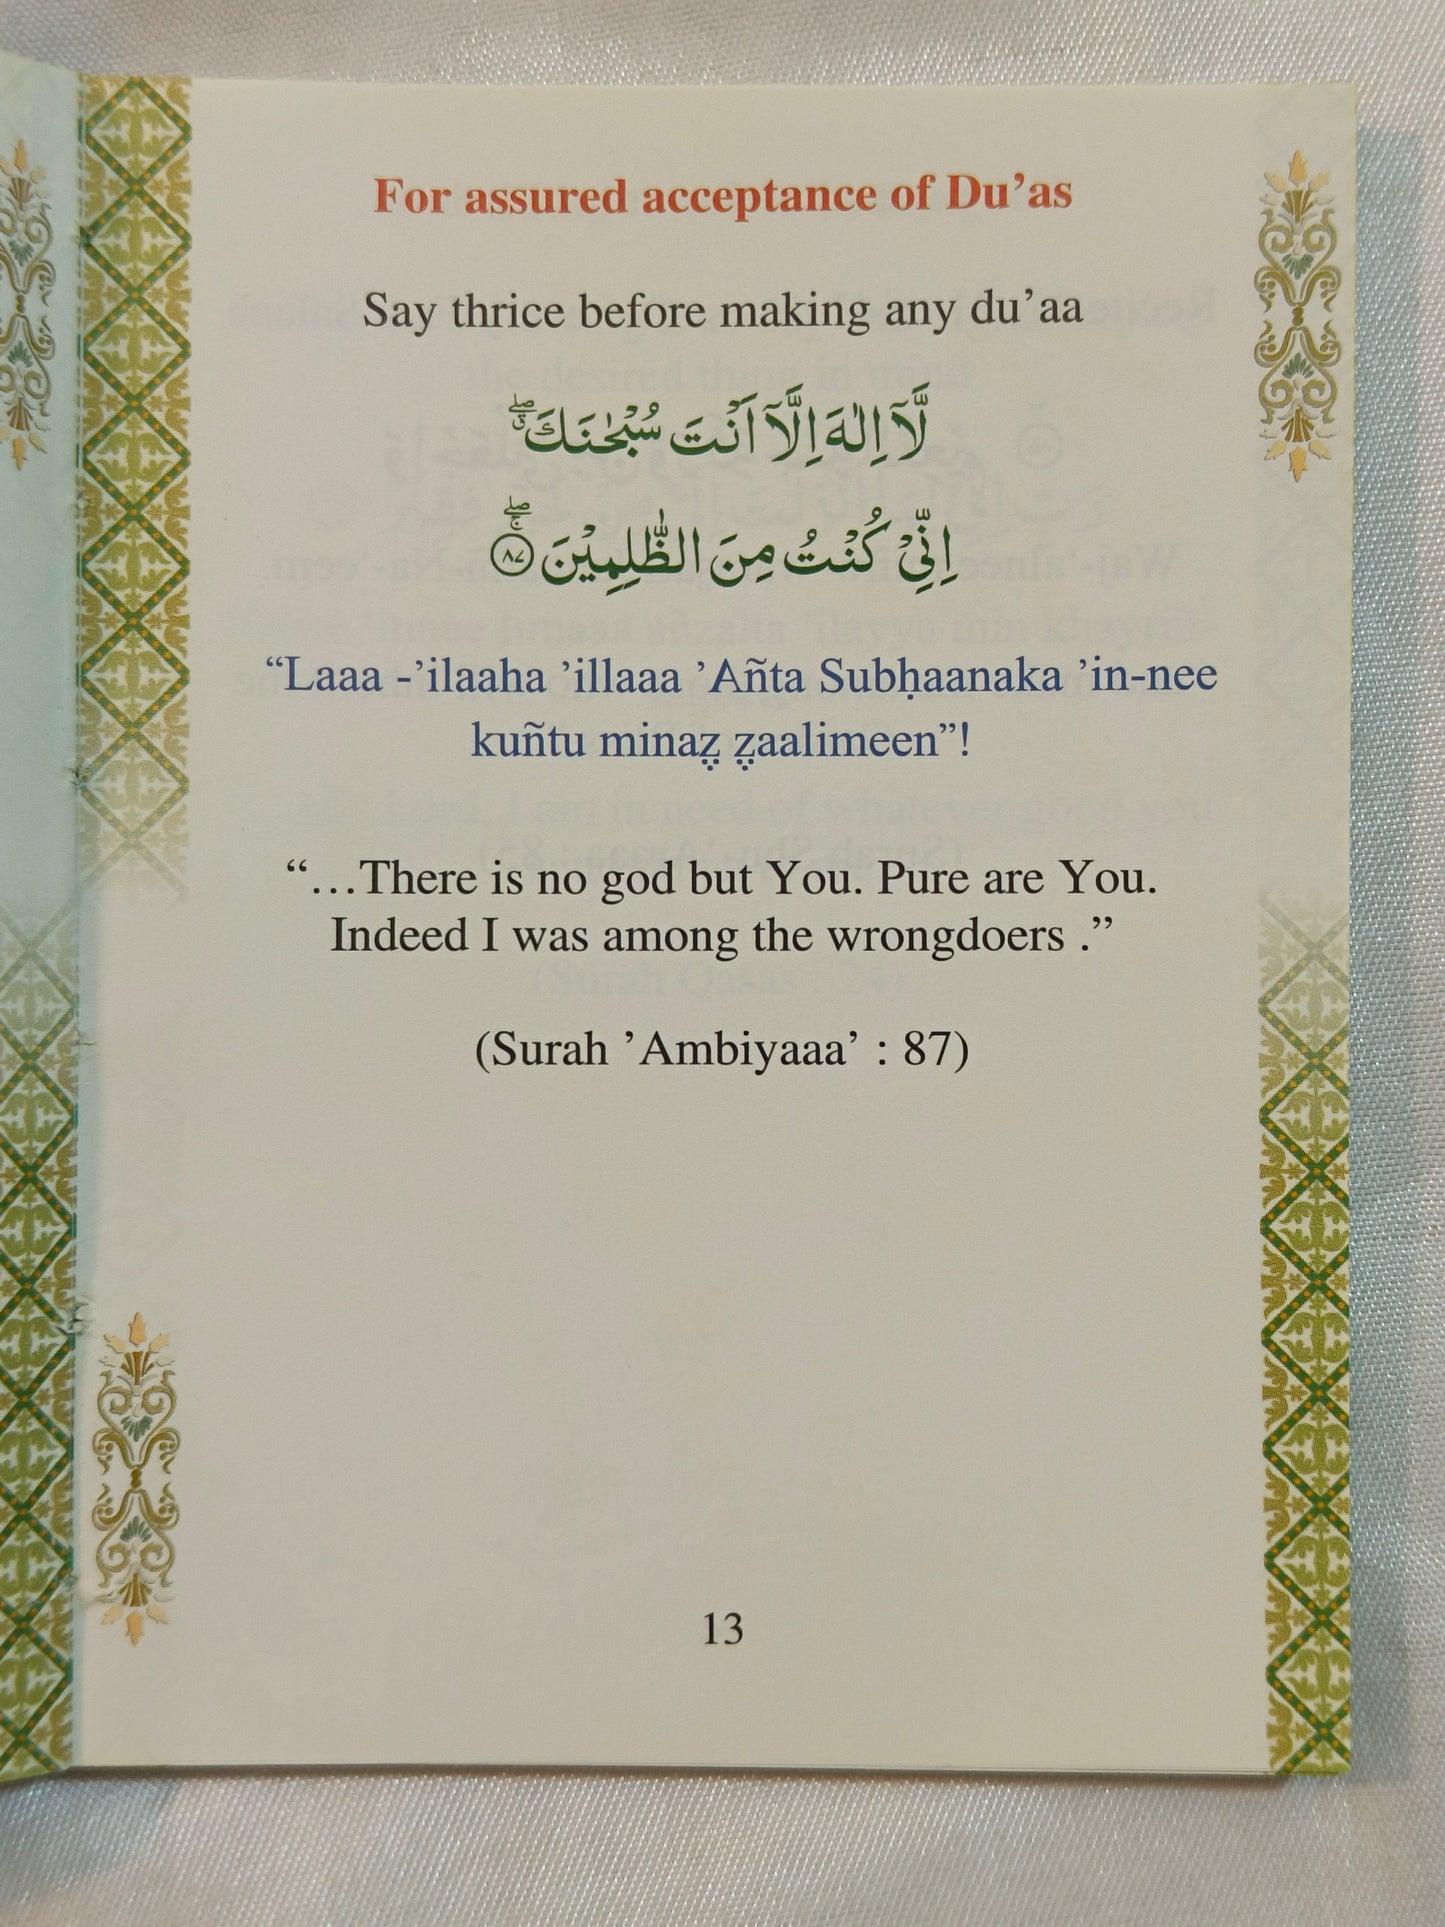 For assured acceptance of Du’as
Say thrice before making any du’aa
لَّاۤ اِلٰهَ اِلَّاۤ اَنْتَ سُبْحٰنَكَ ۖۗ
اِنِّيْ كُنْتُ مِنَ الظّٰلِمِيْنَ ۚۖ ﴿٨٧﴾
“Laaa -’ilaaha ’illaaa ’Añta Subḥaanaka ’in-nee
kuñtu minaẓ ẓaalimeen”!
“…There is no god but You. Pure are You.
Indeed I was among the wrongdoers .”
(Surah ’Ambiyaaa’ : 87)
13